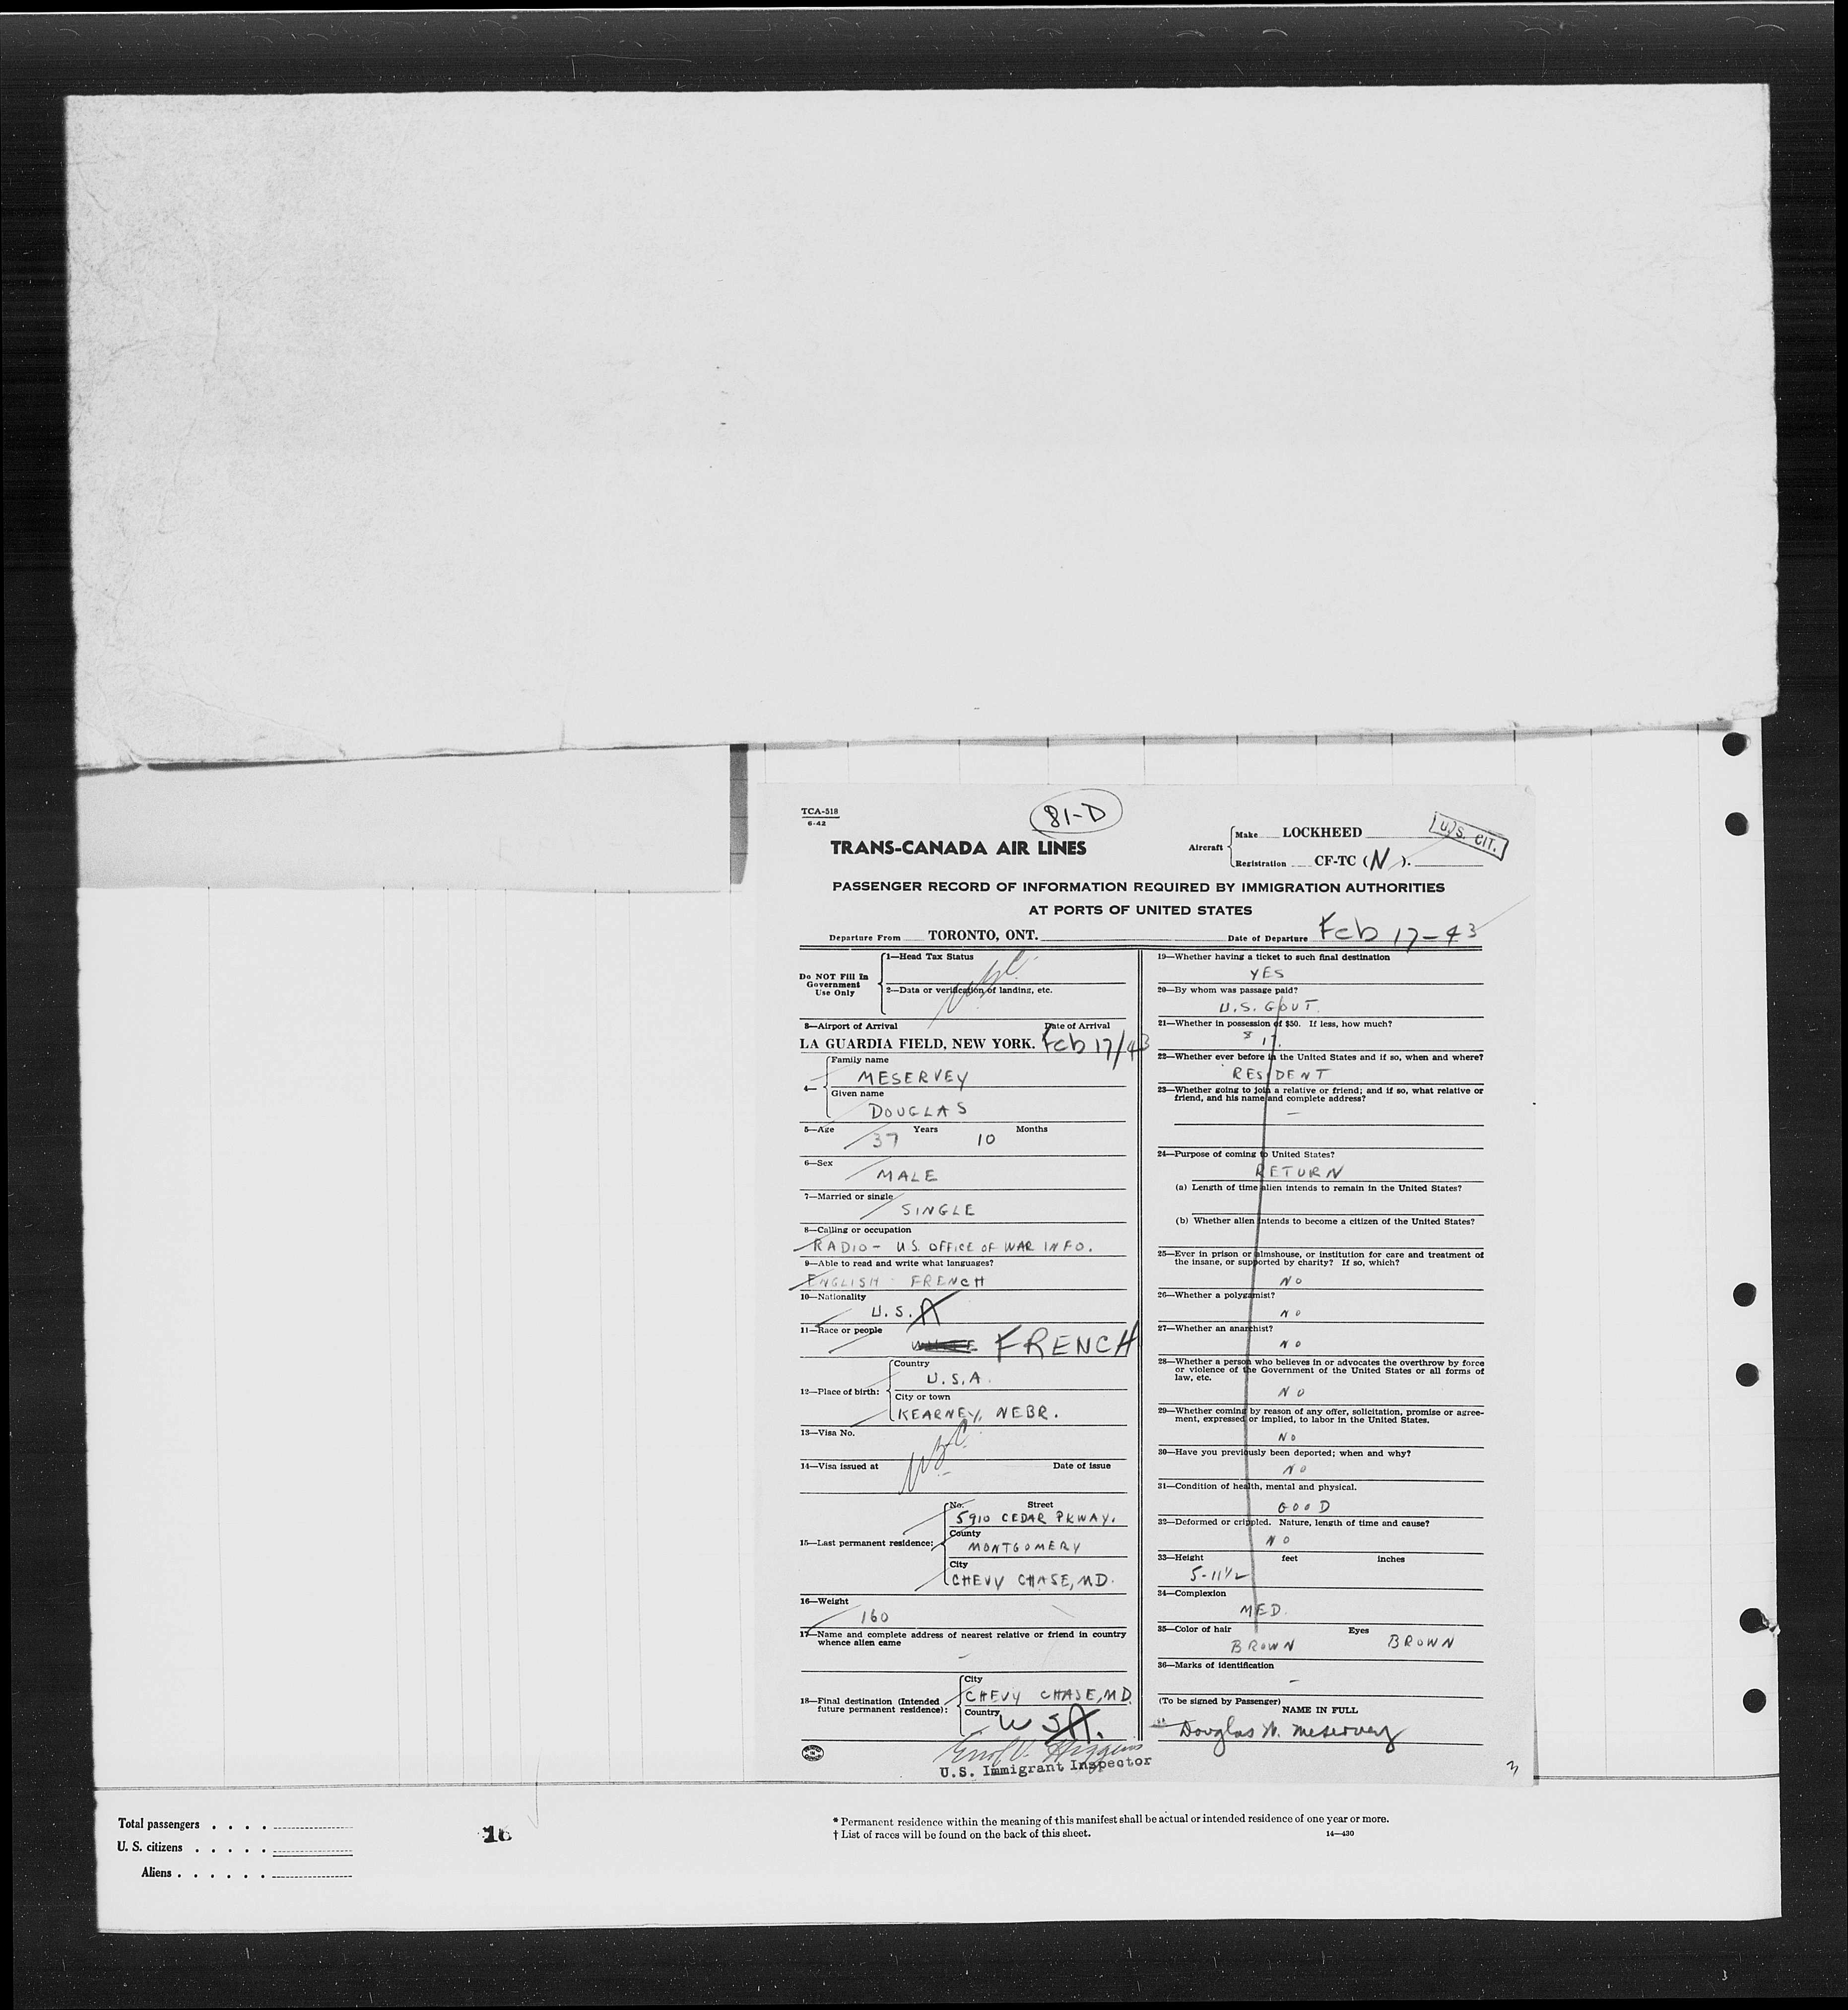 TCA-518
6-42
81-D
TRANS-CANADA AIR LINES
Aircraft
Make LOCKHEED
Registration CF-TC (N).
U.S. CIT.
PASSENGER RECORD OF INFORMATION REQUIRED BY IMMIGRATION AUTHORITIES
AT PORTS OF UNITED STATES
Departure From TORONTO, ONT.
Date of Departure Feb 17-43
Do NOT Fill in
Government
Use Only
1—Head Tax Status
2—Data or verification of landing, etc.
3—Airport of Arrival Date of Arrival
LA GUARDIA FIELD, NEW YORK. Feb 17/43
4—
Family name
MESERVEY
Given name
DOUGLAS
5—Age Years Months
37 10
6—Sex
MALE
7—Married or single
SINGLE
8—Calling or occupation
RADIO - U.S. OFFICE OF WAR INFO.
9—Able to read and write what languages?
ENGLISH FRENCH
10—Nationality
U.S.A
11—Race or people
FRENCH
12—Place of birth:
Country
U.S.A.
City or town
KEARNEY, NEBR.
13—Visa No.
14—Visa issued at Date of issue
15—Last permanent residence:
No. Street
5910 CEDAR PKWAY.
County
MONTGOMERY
City
CHEVY CHASE, MD.
16—Weight
160
17—Name and complete address of nearest relative or friend in country
whence alien came
-
18—Final destination (Intended
future permanent residence):
City
CHEVY CHASE, MD.
Country
USA.
U.S. Immigrant Inspector
19—Whether having a ticket to such final destination
YES
20—By whom was passage paid?
U.S. GOVT.
21—Whether in possession of $50. If less, how much?
$ 17.
22—Whether ever before in the United States and if so, when and where?
RESIDENT
23—Whether going to join a relative or friend; and if so, what relative or
friend, and his name and complete address?
-
24—Purpose of coming to United States?
RETURN
(a) Length of time alien intends to remain in the United States?
(b) Whether alien intends to become a citizen of the United States?
25—Ever in prison or almshouse, or institution for care and treatment of
the insane, or supported by charity? If so, which?
NO
26—Whether a polygamist?
NO
27—Whether an anarchist?
NO
28—Whether a person who believes in or advocates the overthrow by force
or violence of the Government of the United States or all forms of
law, etc.
NO
29—Whether coming by reason of any offer, solicitation, promise or agree-
ment, expressed or implied, to labor in the United States.
NO
30—Have you previously been deported; when and why?
NO
31—Condition of health, mental and physical.
GOOD
32—Deformed or crippled. Nature, length of time and cause?
NO
33—Height feet inches
5-11½
34—Complexion
MED.
35—Color of hair Eyes
BROWN BROWN
36—Marks of identification
-
(To be signed by Passenger)
NAME IN FULL
Douglas W. Meservey
3
Total passengers . . . .
U. S. citizens . . . . .
Aliens . . . . . .
16
* Permanent residence within the meaning of this manifest shall be actual or intended residence of one year or more.
† List of races will be found on the back of this sheet.
14—430